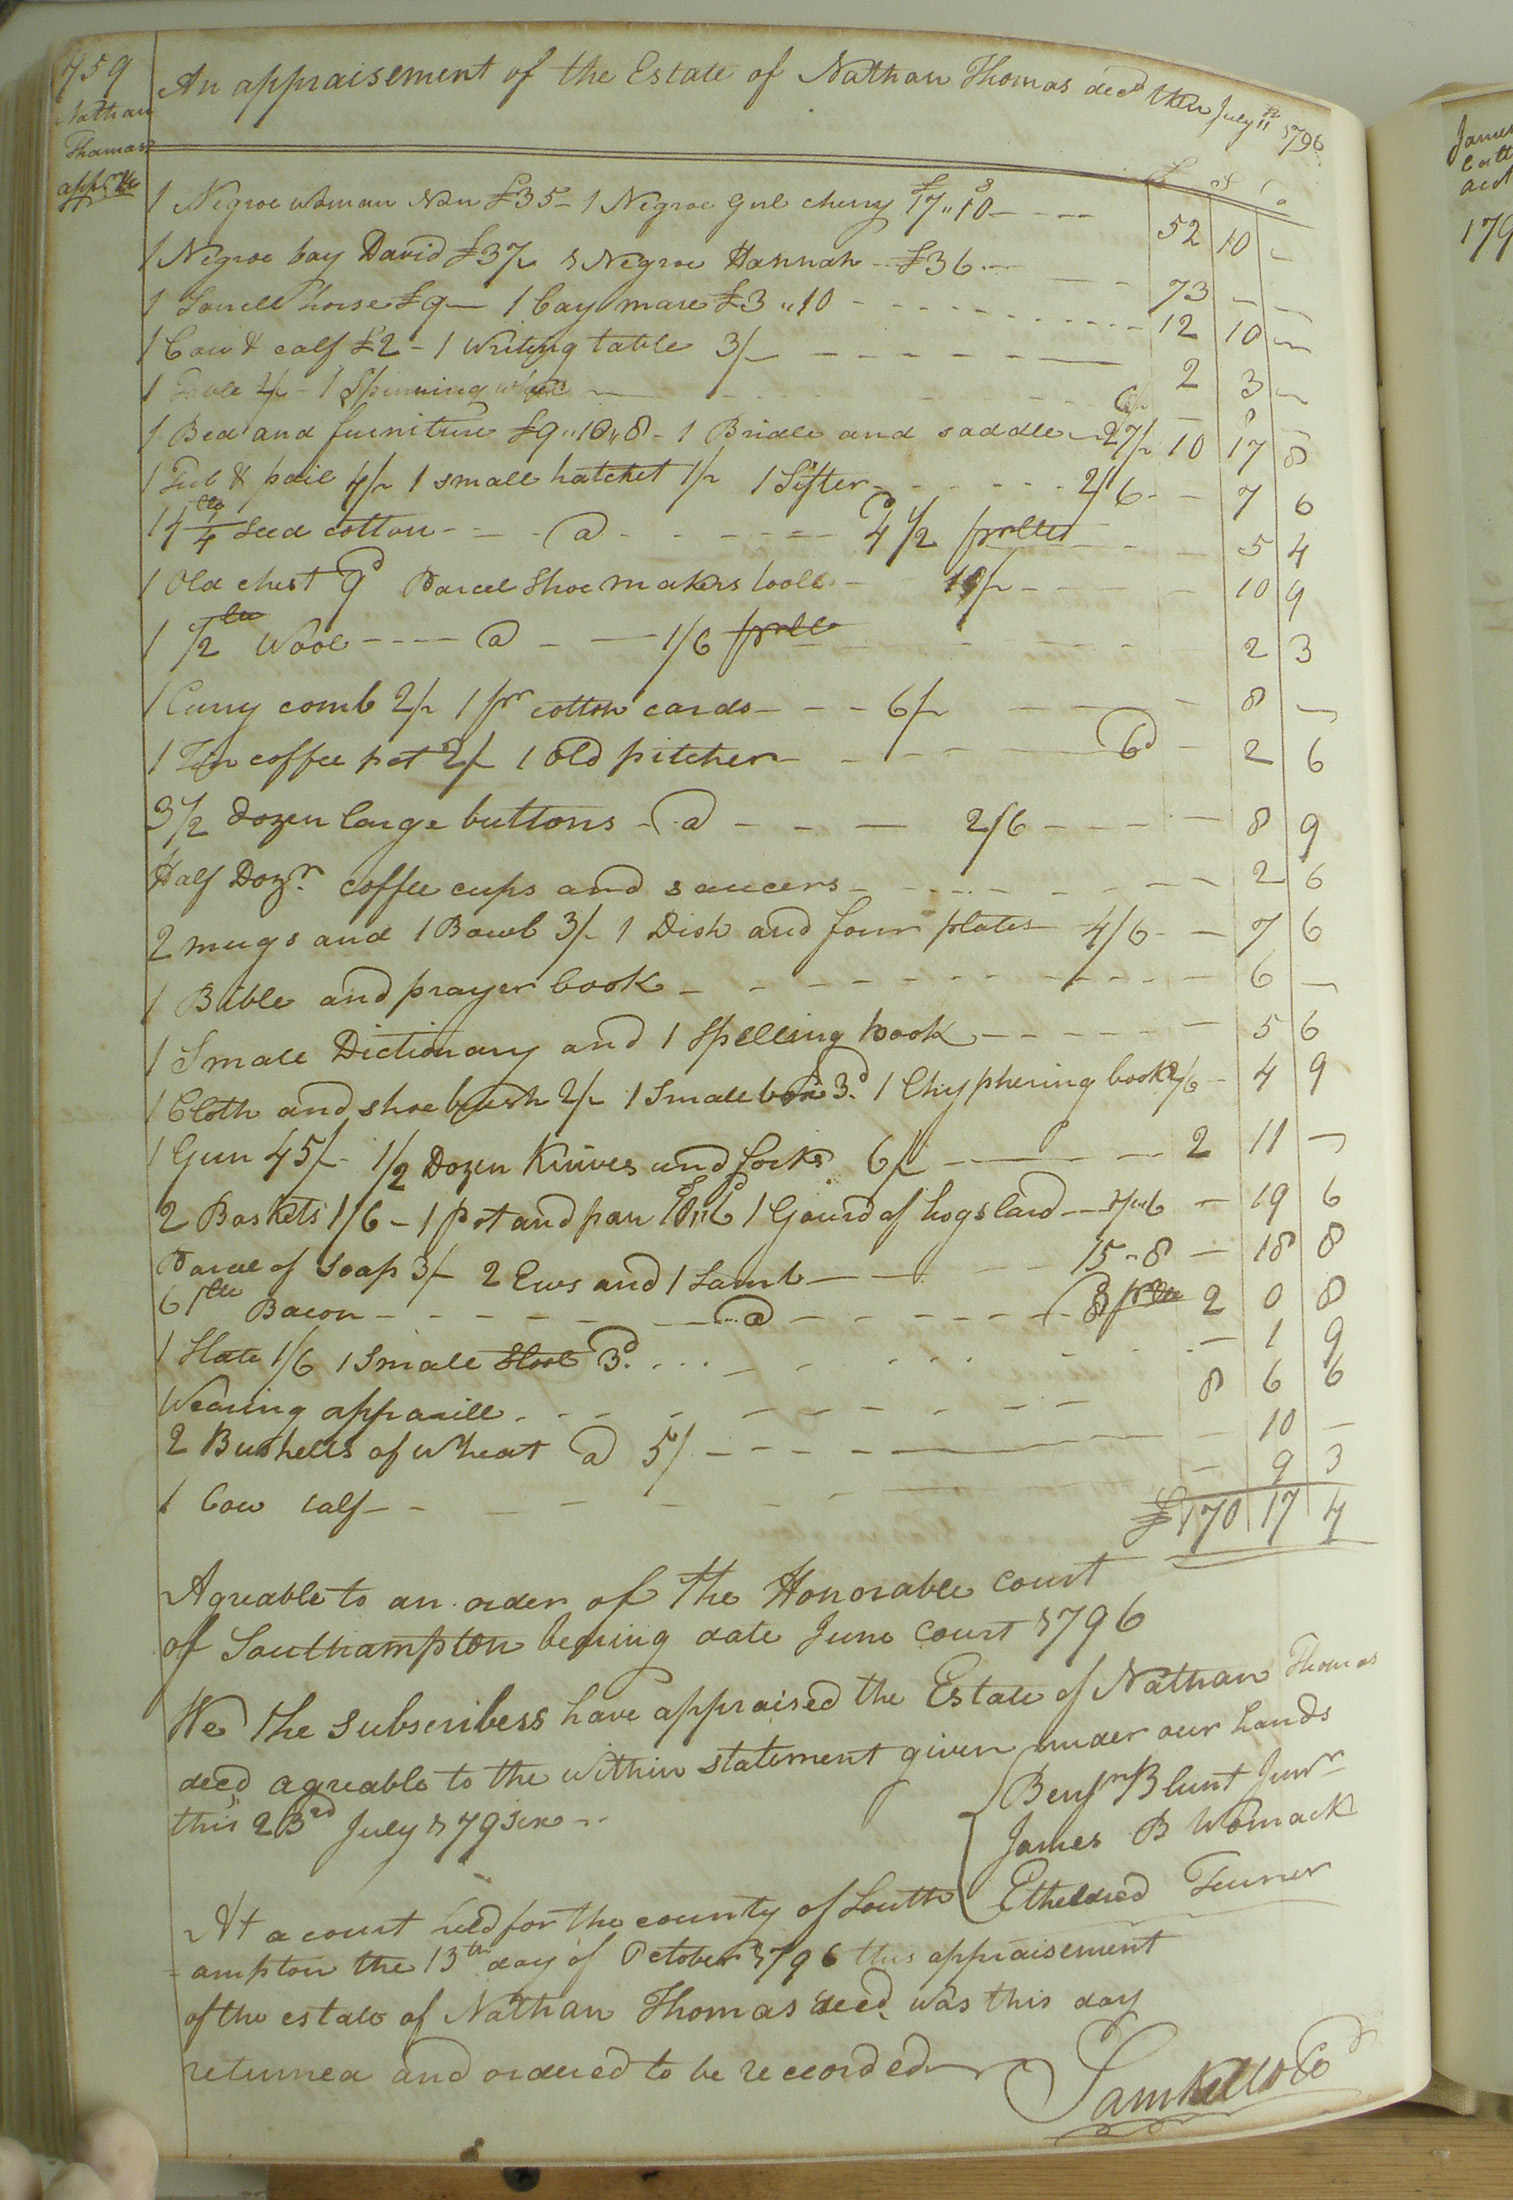 759
Nathan
Thomas
An appraisement of the Estate of Nathan Thomas decd July 11th 1796
1 Negroe woman Nan £35 - 1 Negroe Girl cherry £17"10s - - - 52 10 -
1 Negroe boy David £37/- 1 Negroe Hannah - £36 - - - 73 - -
1 Sorrell horse £9 - 1 bay mare £3"10 - - - 12 10 -
1 Cow & calf £2 - 1 writing table 3/- - - - 2 3 -
1 Table 2/- - 1 Spinning wheel - - - 6/- - 8 -
1 Bed and furniture £9"10"8 - 1 Bridle and saddle - 27/- 10 17 8
1 Tub & pail 4/- 1 small hatchet 1/- 1 Sifter - - - 2/6 - - 7 6
14 1/4 lb Seed cotton - - - @ - - - 4d 1/2 pr lb - - - 5 4
1 Old chest 9d Parcel Shoe makers tools - 10/- - - - 10 9
1 1/2 lb Wool - - - @ - - 1/6 pr lb - - - 2 3
1 Curry comb 2/- 1 pr cotton cards - - - 6/- - - - 8 -
1 Tin coffee pot 2/- 1 old pitcher - - - 6d - 2 6
3 1/2 Dozen large buttons - @ - - - 2/6 - - - 8 9
Half Dozn. coffee cups and saucers - - - 2 6
2 mugs and 1 Bowl 3/- 1 Dish and four plates 4/6 - - 7 6
1 Bible and prayer book - - - 6 -
1 Small Dictionary and 1 Spelling book - - - 5 6
1 Cloth and shoe brush 2/- 1 Small box 3d. 1 Chyphering book 2/6 - 4 9
1 Gun 45/- 1/2 Dozen Knives and forks 6/- - - - 2 11 -
2 Baskets 1/6 - 1 pot and pan 10s"6d 1 Gourd of hogs lard - - 7"6 - 19 6
Parcel of soap 3/- 2 Ews and 1 Lamb - - - 15"8 - 18 8
61 lb Bacon - - - @ - - - 8d pr lb 2 0 8
1 Slate 1/6 1 Small 3d. - - - 1 9
Wearing apparill - - - 8 6 6
2 Bushells of wheat @ 5/ - - - 10 -
1 Cow calf - - - 9 3
£170 17 4
Agreable to an order of the Honorable court
of Southampton bearing date June Court 1796
We the subscribers have appraised the Estate of Nathan Thomas
decd agreable to the within statement given under our hands
this 23rd July 179six - -
Benjn Blunt Junr
James B Womack
Etheldred Turner
At a court held for the county of South
ampton the 13th day of October 1796 this appraisement
of the estate of Nathan Thomas decd. was this day
returned and ordered to be recorded
James
179